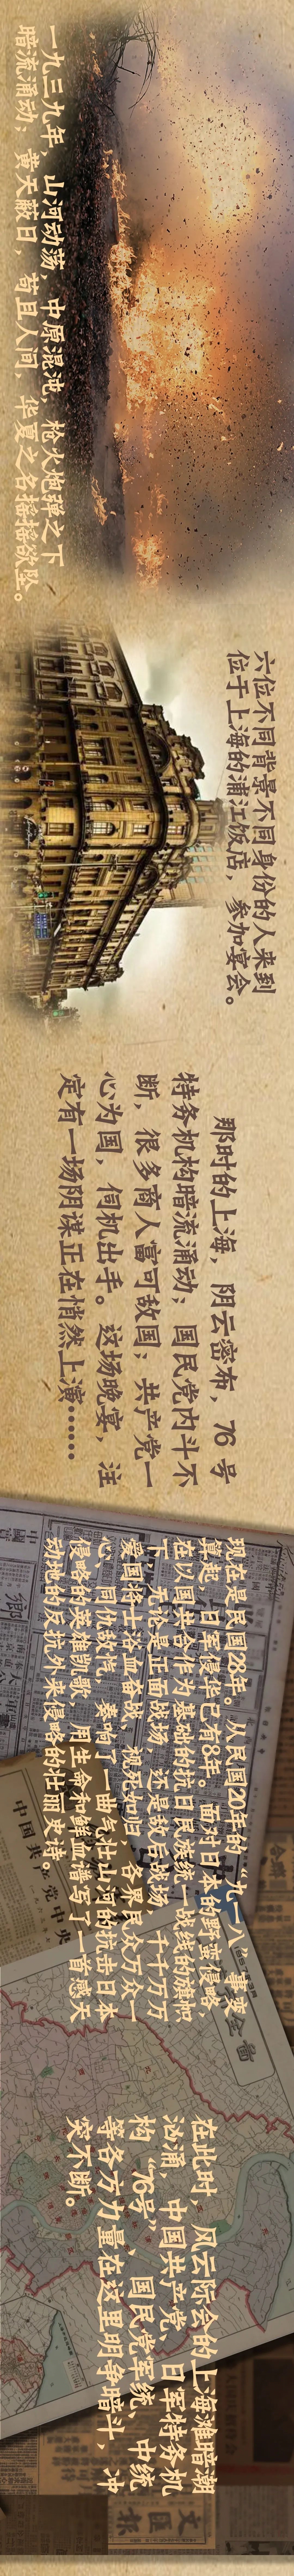 一九三九年，山河动荡，中原混沌，枪火炮弹之下
暗流涌动；黄天蔽日，苟且人间，华夏之名摇摇欲坠。
六位不同背景不同身份的人来到
位于上海的浦江饭店，参加宴会。
那时的上海，阴云密布，76号
特务机构暗流涌动；国民党内斗不
断，很多商人富可敌国；共产党一
心为国，伺机出手。这场晚宴，注
定有一场阴谋正在悄然上演……
现在是民国28年。从民国20年的“九一八”事变
算起，日军侵华已有8年。面对日本的野蛮侵略，
在以国共合作为基础的抗日民族统一战线的旗帜
下，无论是正面战场，还是敌后战场，千千万万
爱国将士浴血奋战、视死如归，各界民众万众一
心、同仇敌忾，奏响了一曲气壮山河的抗击日本
侵略的英雄凯歌，用生命和鲜血谱写了一首感天
动地的反抗外来侵略的壮丽史诗。
在此时，风云际会的上海滩暗潮
汹涌，中国共产党、日军特务机
构“76号”、国民党军统、中统
等各方力量在这里明争暗斗，冲
突不断。
文匯報